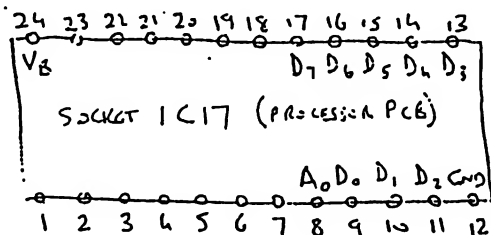 24 23 22 21 20 19 18 17 16 15 14 13
V_B D_7 D_6 D_5 D_4 D_3
SOCKET IC17 (PROCESSOR PCB)
A_0 D_0 D_1 D_2 GND
1 2 3 4 5 6 7 8 9 10 11 12